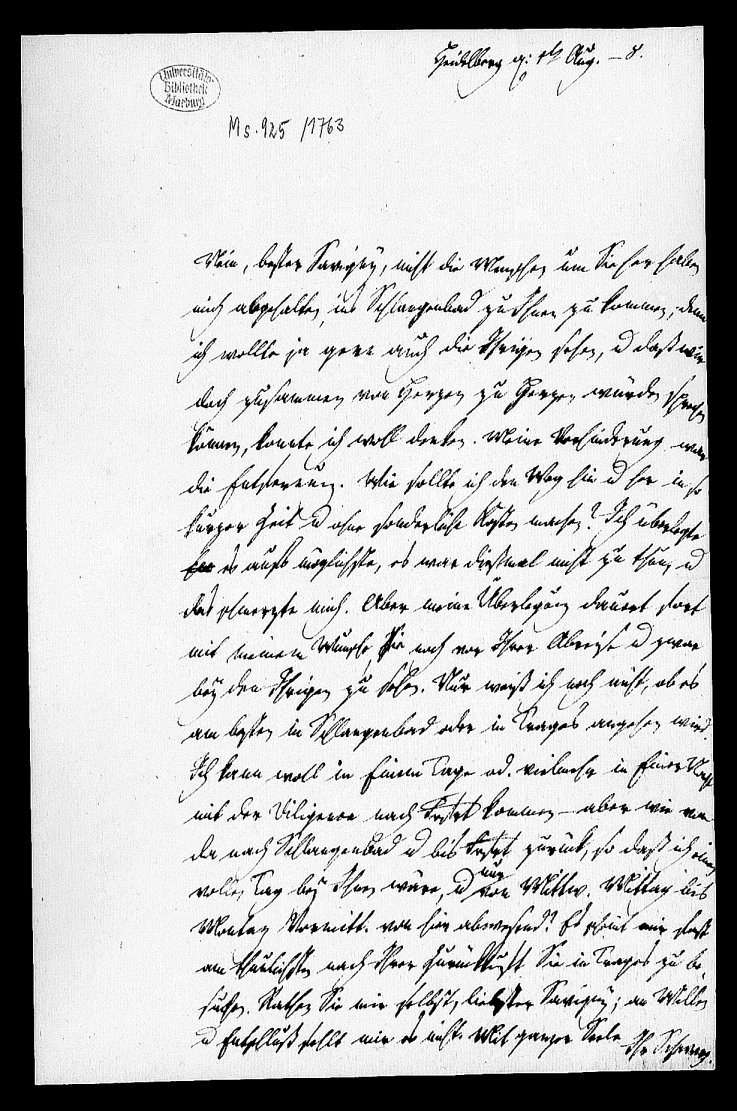 Heidelberg d. Aug. – 8.
Universitäts
Bibliothek
Marburg
Ms. 925 /1763
Nein, bester Savigny, nicht die Menschen um Sie her haben
mich abgehalten, ins Schlangenbad zu Ihnen zu kommen, denn
ich wollte ja gern auch die Ihrigen sehen, u daß wir
doch zusammen von Herzen zu Herzen würden sprechen
können, konnte ich wohl denken. Meine Verhinderung war
die Entfernung. Wie sollte ich den Weg hin u her in so
kurzer Zeit u ohne sonderliche Kosten machen? Ich überlegte
es aufs möglichste, es war dießmal nicht zu thun, u
das schmerzte mich. Aber meine Überlegung dauert fort
mit meinem Wunsche Sie noch vor Ihrer Abreise u zwar
bey den Ihrigen zu sehen. Nur weiß ich noch nicht, ob es
am besten in Schlangenbad oder in Trages angehen wird.
Ich kann wohl in Einem Tage od. vielmehr in Einer Nacht
mit der Diligence nach kommen – aber wie von
da nach Schlangenbad u bis zurück, so daß ich einen
vollen Tag bey Ihnen wäre, u nur von Mittw. Mittag bis
Montag Vormitt. von hier abwesend? Es scheint mir fast
am thunlichsten nach Ihrer Zurückkunft Sie in Trages zu be-
suchen. Rathen Sie mir selbst, liebster Savigny; an Willen
u Entschluß fehlt mir es nicht. Mit ganzer Seele Ihr Schwarz.